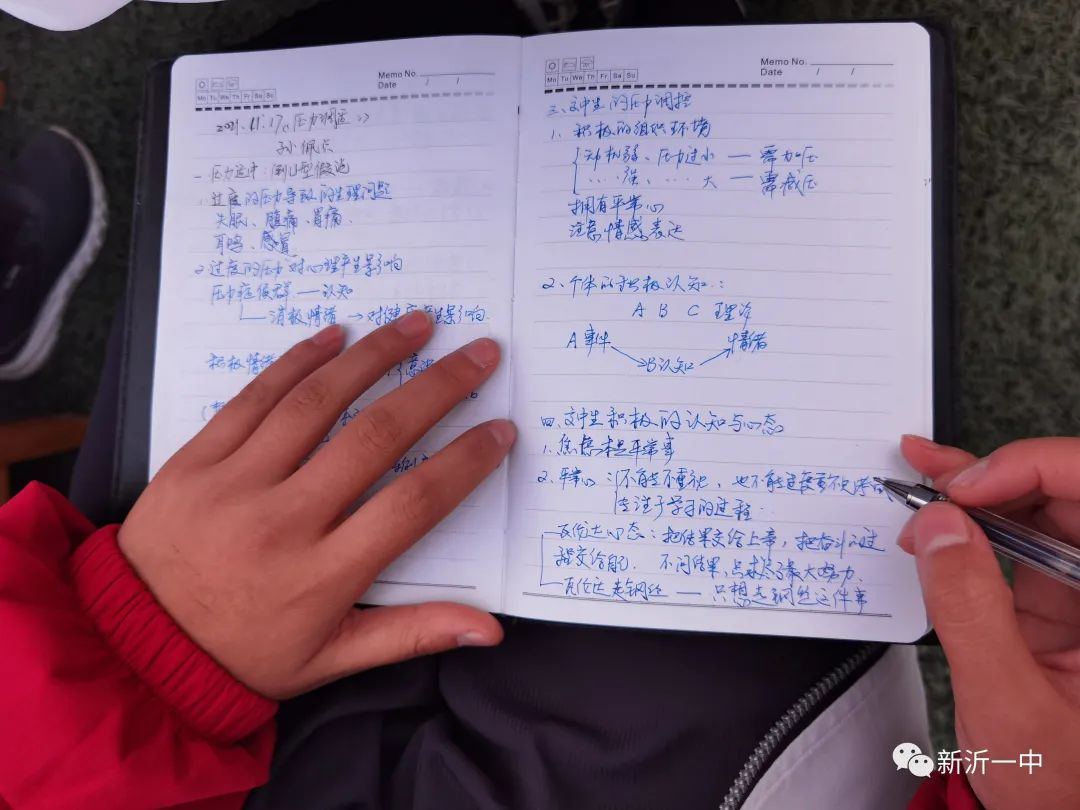 Memo No.
Date / /
Mo Tu We Th Fr Sa Su
2021.11.17《压力调适》
孙佩兵
一、压力适中:倒U型假说
1.过度的压力导致的生理问题
失眠、腹痛、胃痛、
耳鸣、感冒
2.过度的压力对心理产生影响
压力症候群—认知
消极情绪→对健康产生影响
积极情绪
Memo No.
Date / /
Mo Tu We Th Fr Sa Su
三、文中生的压力调控
1、积极的组织环境
动机弱、压力过小 — 需加压
‥‥强、‥‥大 — 需减压
拥有平常心
注意情感表达
2、个体的积极认知:
A B C 理论
A事件 情绪
B认知
四、文中生积极的认知与心态
1.焦虑本是平常事
2.平常心:不能不重视,也不能过度
专注于学习的过程
瓦伦达心态:把结果交给上帝,把奋斗的过
程交给自己. 不问结果,只求尽了最大努力.
瓦伦达走钢丝 — 只想走钢丝这件事
新沂一中